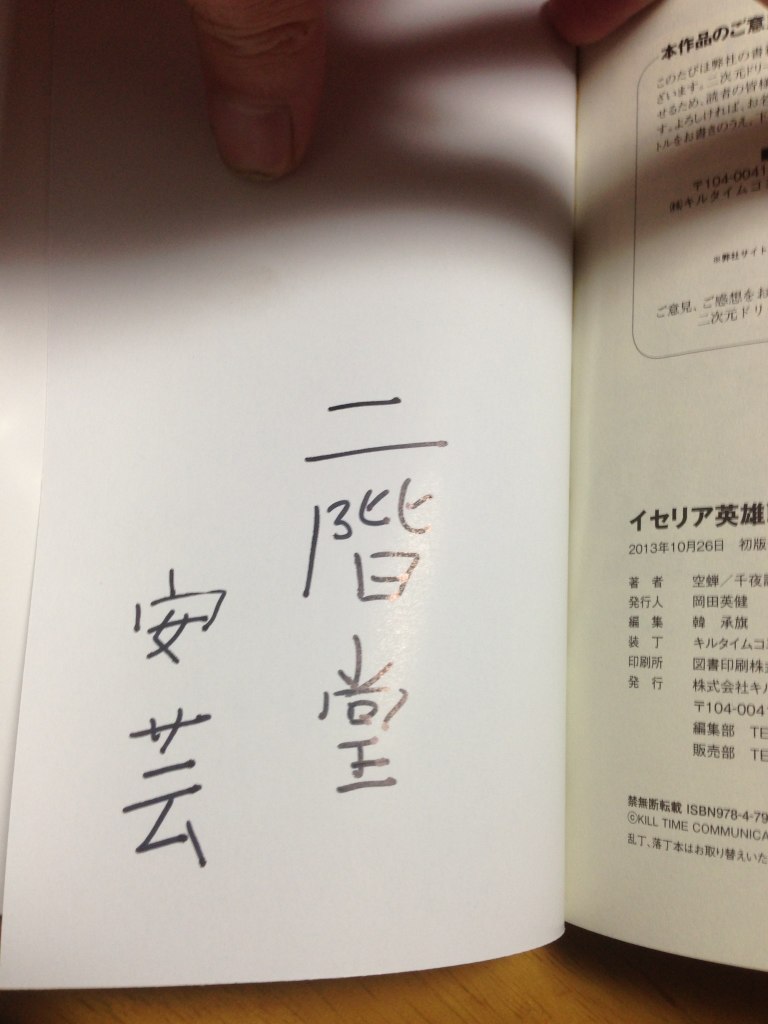 二階堂
安芸
本作品のご意
このたびは弊社の書
ざいます。二次元ドリー
せるため、読者の皆様
す。よろしければ、お名
トルをお書きのうえ、
〒104-0041
㈱キルタイムコミ
※弊社サイト
ご意見、ご感想をお
二次元ドリ
イセリア英雄
2013年10月26日 初版
著者 空蝉／千夜
発行人 岡田英健
編集 韓 承旗
装丁 キルタイムコミ
印刷所 図書印刷株
発行 株式会社キル
〒104-004
編集部 TE
販売部 TE
禁無断転載 ISBN978-4-79
©KILL TIME COMMUNICA
乱丁、落丁本はお取り替えいた